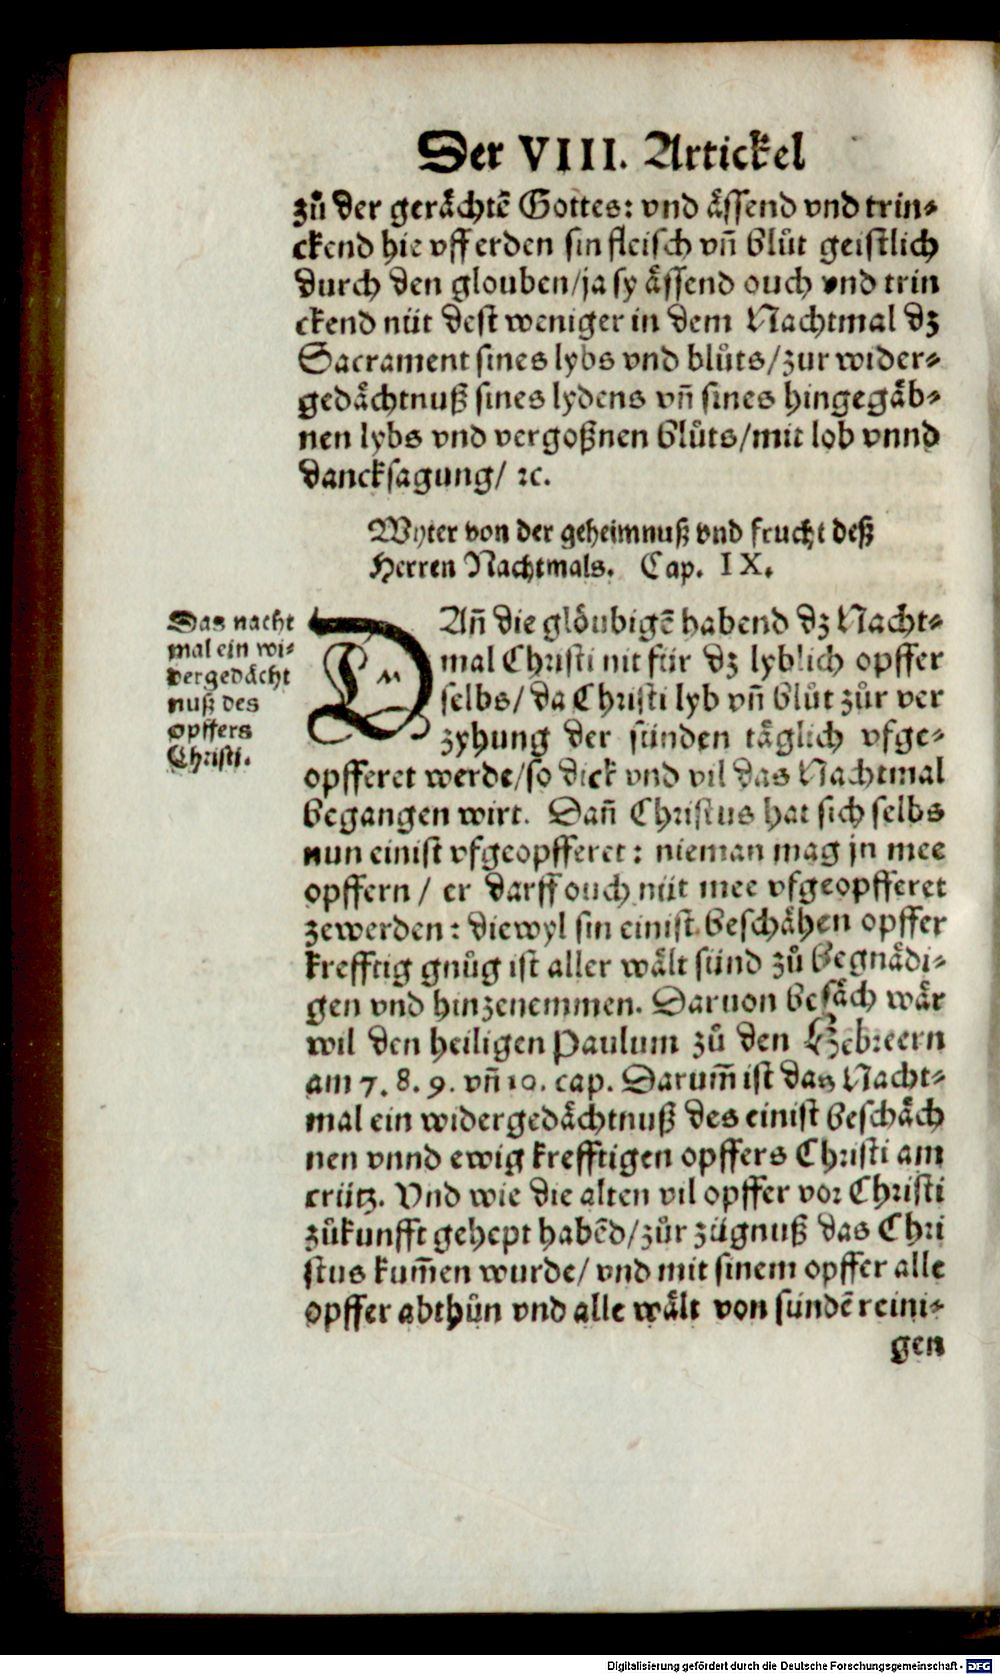 Der VIII. Artickel
zů der gerächtē Gottes: vnd ässend vnd trin-
ckend hie vff erden sin fleisch vn̄ blůt geistlich
durch den glouben/ja sy ässend ouch vnd trin
ckend nüt dest weniger in dem Nachtmal dz
Sacrament sines lybs vnd blůts/zur wider-
gedächtnuß sines lydens vn̄ sines hingegäb-
nen lybs vnd vergoßnen blůts/mit lob vnnd
dancksagung/ ꝛc.
Wyter von der geheimnuß vnd frucht deß
Herren Nachtmals. Cap. IX.
Das nacht
mal ein wi-
dergedächt
nuß des
opffers
Christi.
DAn̄ die glöubigē habend dz Nacht-
mal Christi nit für dz lyblich opffer
selbs/ da Christi lyb vn̄ blůt zůr ver
zyhung der sünden täglich vfge-
opfferet werde/so dick vnd vil das Nachtmal
begangen wirt. Dan̄ Christus hat sich selbs
nun einist vfgeopfferet: nieman mag jn mee
opffern / er darff ouch nüt mee vfgeopfferet
zewerden: diewyl sin einist beschähen opffer
krefftig gnůg ist aller wält sünd zů begnädi-
gen vnd hinzenemmen. Daruon besäch wär
wil den heiligen Paulum zů den Hebreern
am 7. 8. 9. vn̄ 10. cap. Darum̄ ist das Nacht-
mal ein widergedächtnuß des einist beschäch
nen vnnd ewig krefftigen opffers Christi am
crütz. Vnd wie die alten vil opffer vor Christi
zůkunfft gehept habēd/zůr zügnuß das Chri
stus kum̄en wurde/ vnd mit sinem opffer alle
opffer abthůn vnd alle wält von sündē reini-
gen
Digitalisierung gefördert durch die Deutsche Forschungsgemeinschaft - DFG